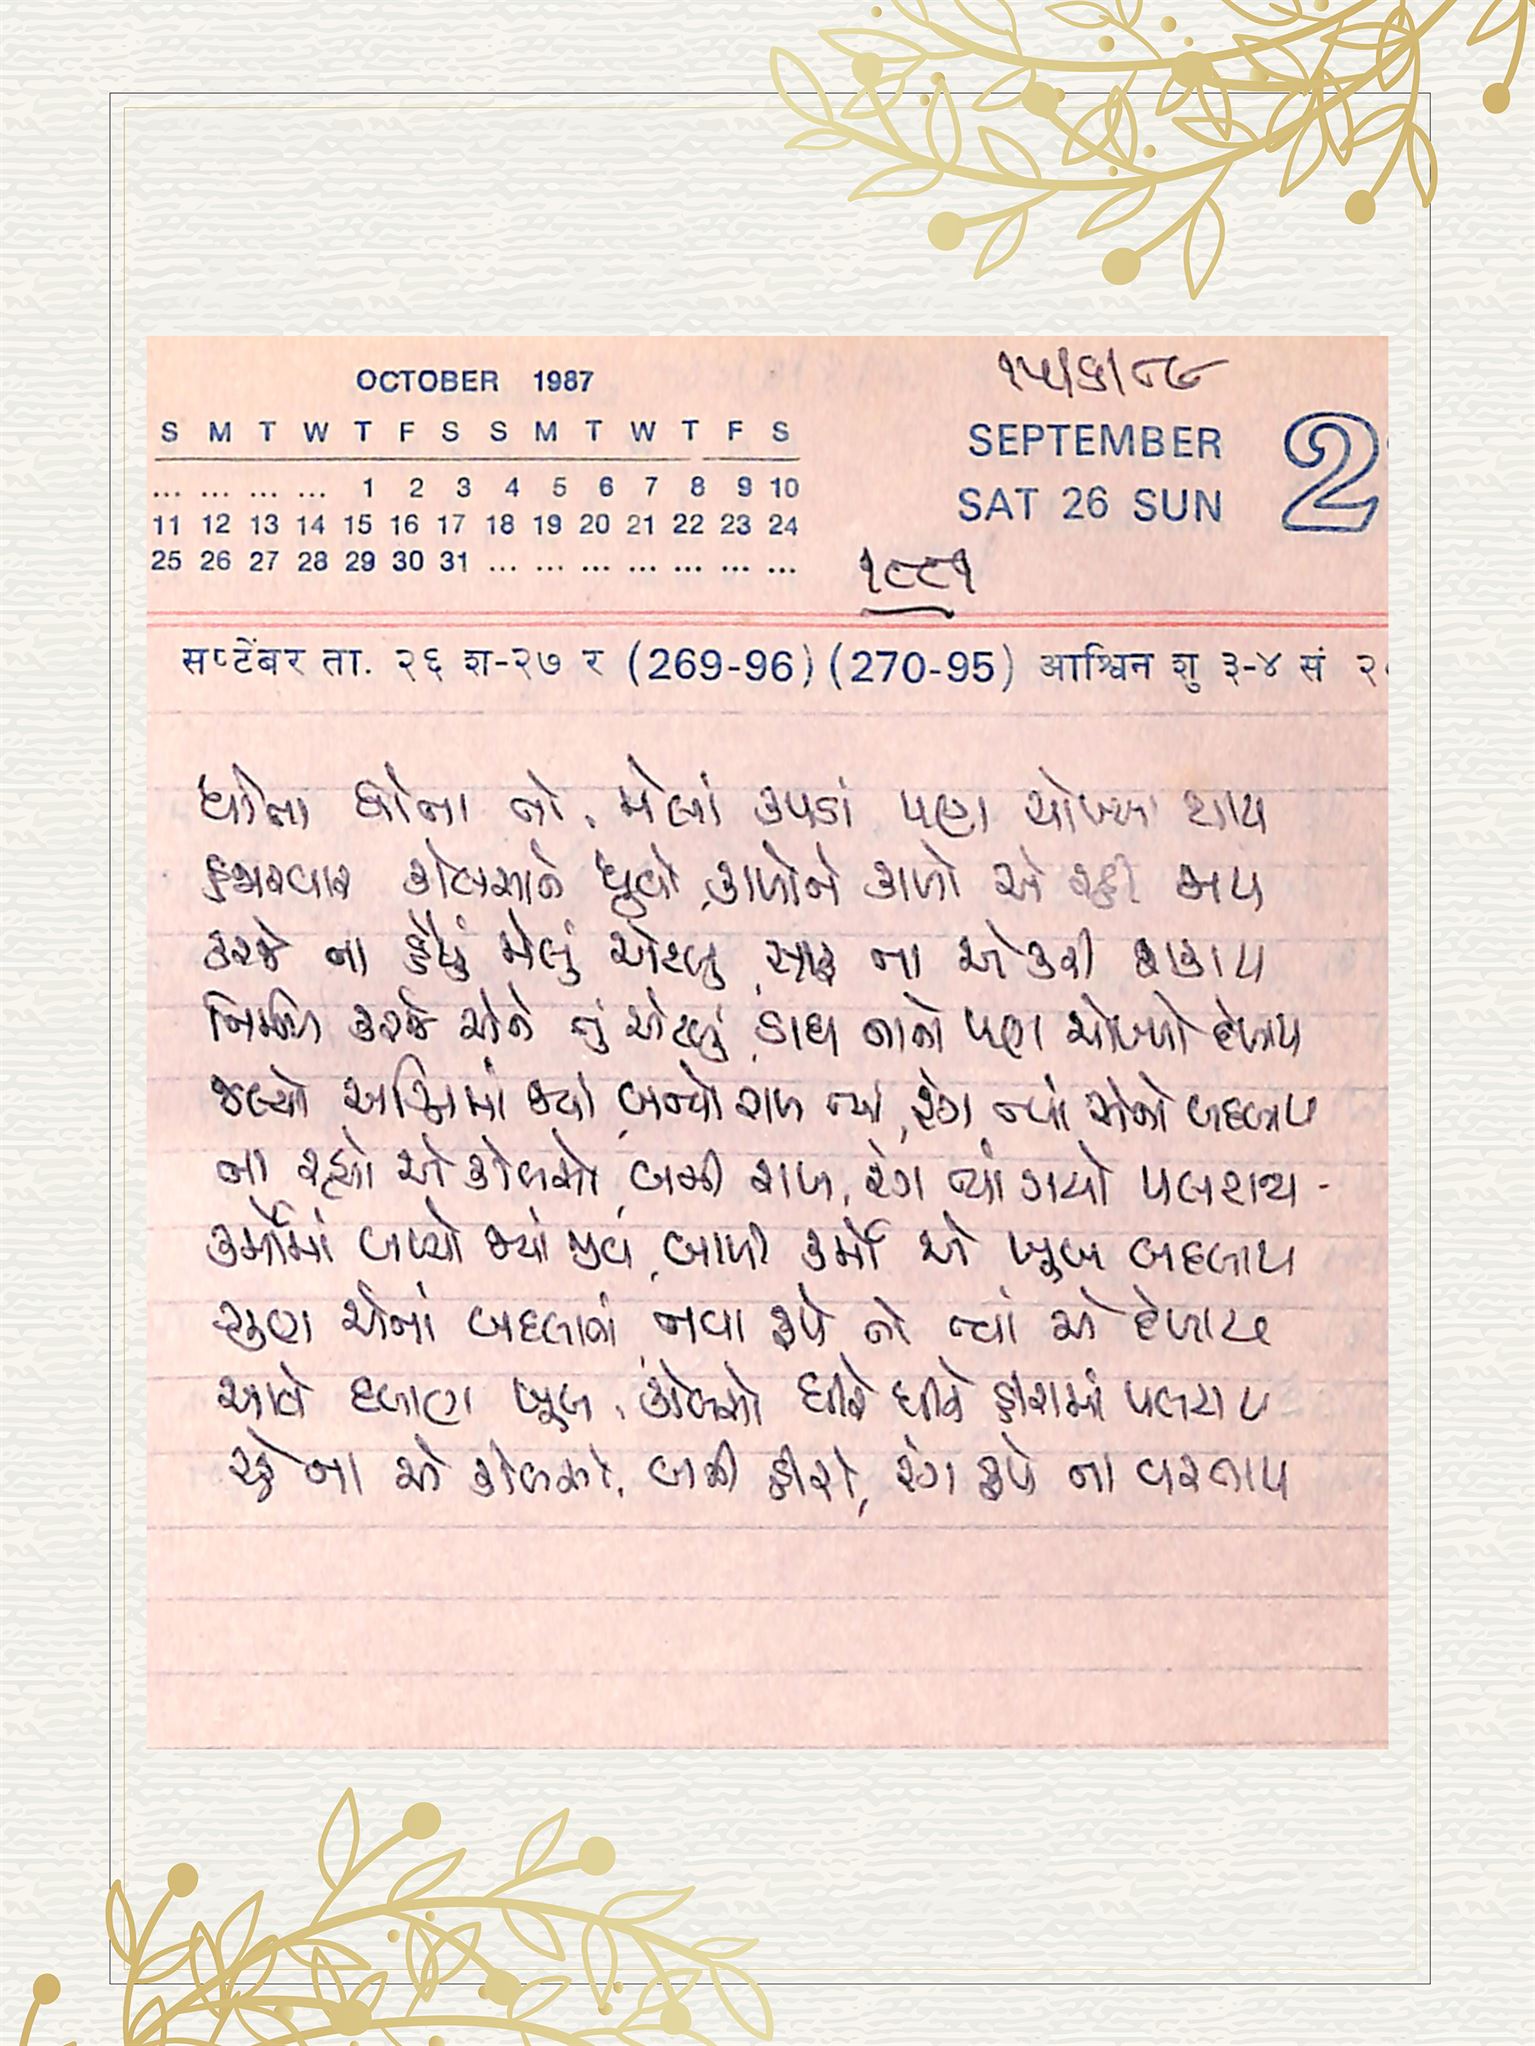 OCTOBER 1987
S M T W T F S S M T W T F S
... ... ... ... 1 2 3 4 5 6 7 8 9 10
11 12 13 14 15 16 17 18 19 20 21 22 23 24
25 26 27 28 29 30 31 ... ... ... ... ... ... ...
૧૫/૬/૮૮
SEPTEMBER
SAT 26 SUN
2
૧૮૮૧
सप्टेंबर ता. २६ श-२७ र (269-96) (270-95) आश्विन शु ३-४ सं २
ધોતા ધોતા તો, મેલાં કપડાં પણ ચોખ્ખા થાય
હજારવાર કોલસાને ધુવો, કાળોને કાળો એ રહી જાય
કરજે ના હૈયું મેલું એટલું, સાફ ના એ કરી શકાય
નિર્મળ કરજે એને તું એટલું, ડાઘ નાનો પણ ચોખ્ખો દેખાય
જલ્યો અગ્નિમાં જ્યાં, બન્યો રાખ ત્યાં, રંગ ત્યાં એનો બદલાય
ના રહ્યો એ કોલસો, બની રાખ, રંગ ત્યાં ગયો પલટાય
કર્મોમાં બળ્યો જ્યાં જીવ, બાળી કર્મો એ ખૂબ બદલાય
ગુણ એનાં બદલાતાં, નવા રૂપે તો ત્યાં એ દેખાય
આવે દબાણ ખૂબ, કોલસો ધીરે ધીરે હીરામાં પલટાય
રહે ના એ કોલસો, બની હીરો, રંગ રૂપે ના વરતાય